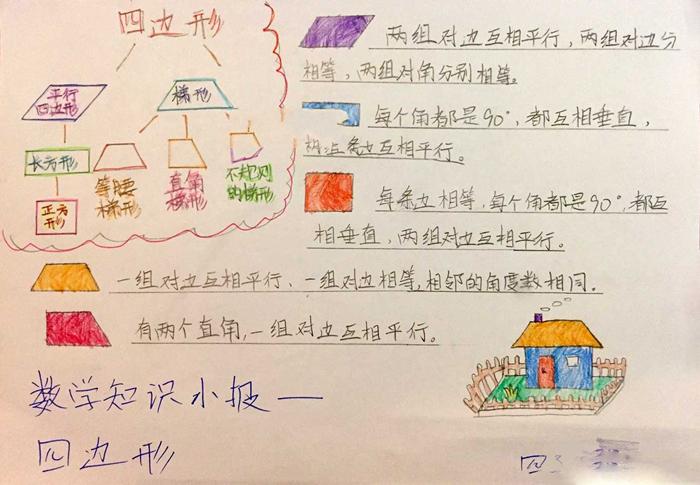 四边形
平行
四边形
梯形
长方形
正方
形
等腰
梯形
直角
梯形
不规则
的梯形
两组对边互相平行，两组对边分
相等，两组对角分别相等。
每个角都是90°，都互相垂直，
边互相平行。
每条边相等，每个角都是90°，都互
相垂直，两组对边互相平行。
一组对边互相平行、一组对边相等，相邻的角度数相同。
有两个直角，一组对边互相平行。
数学知识小报——
四边形
四